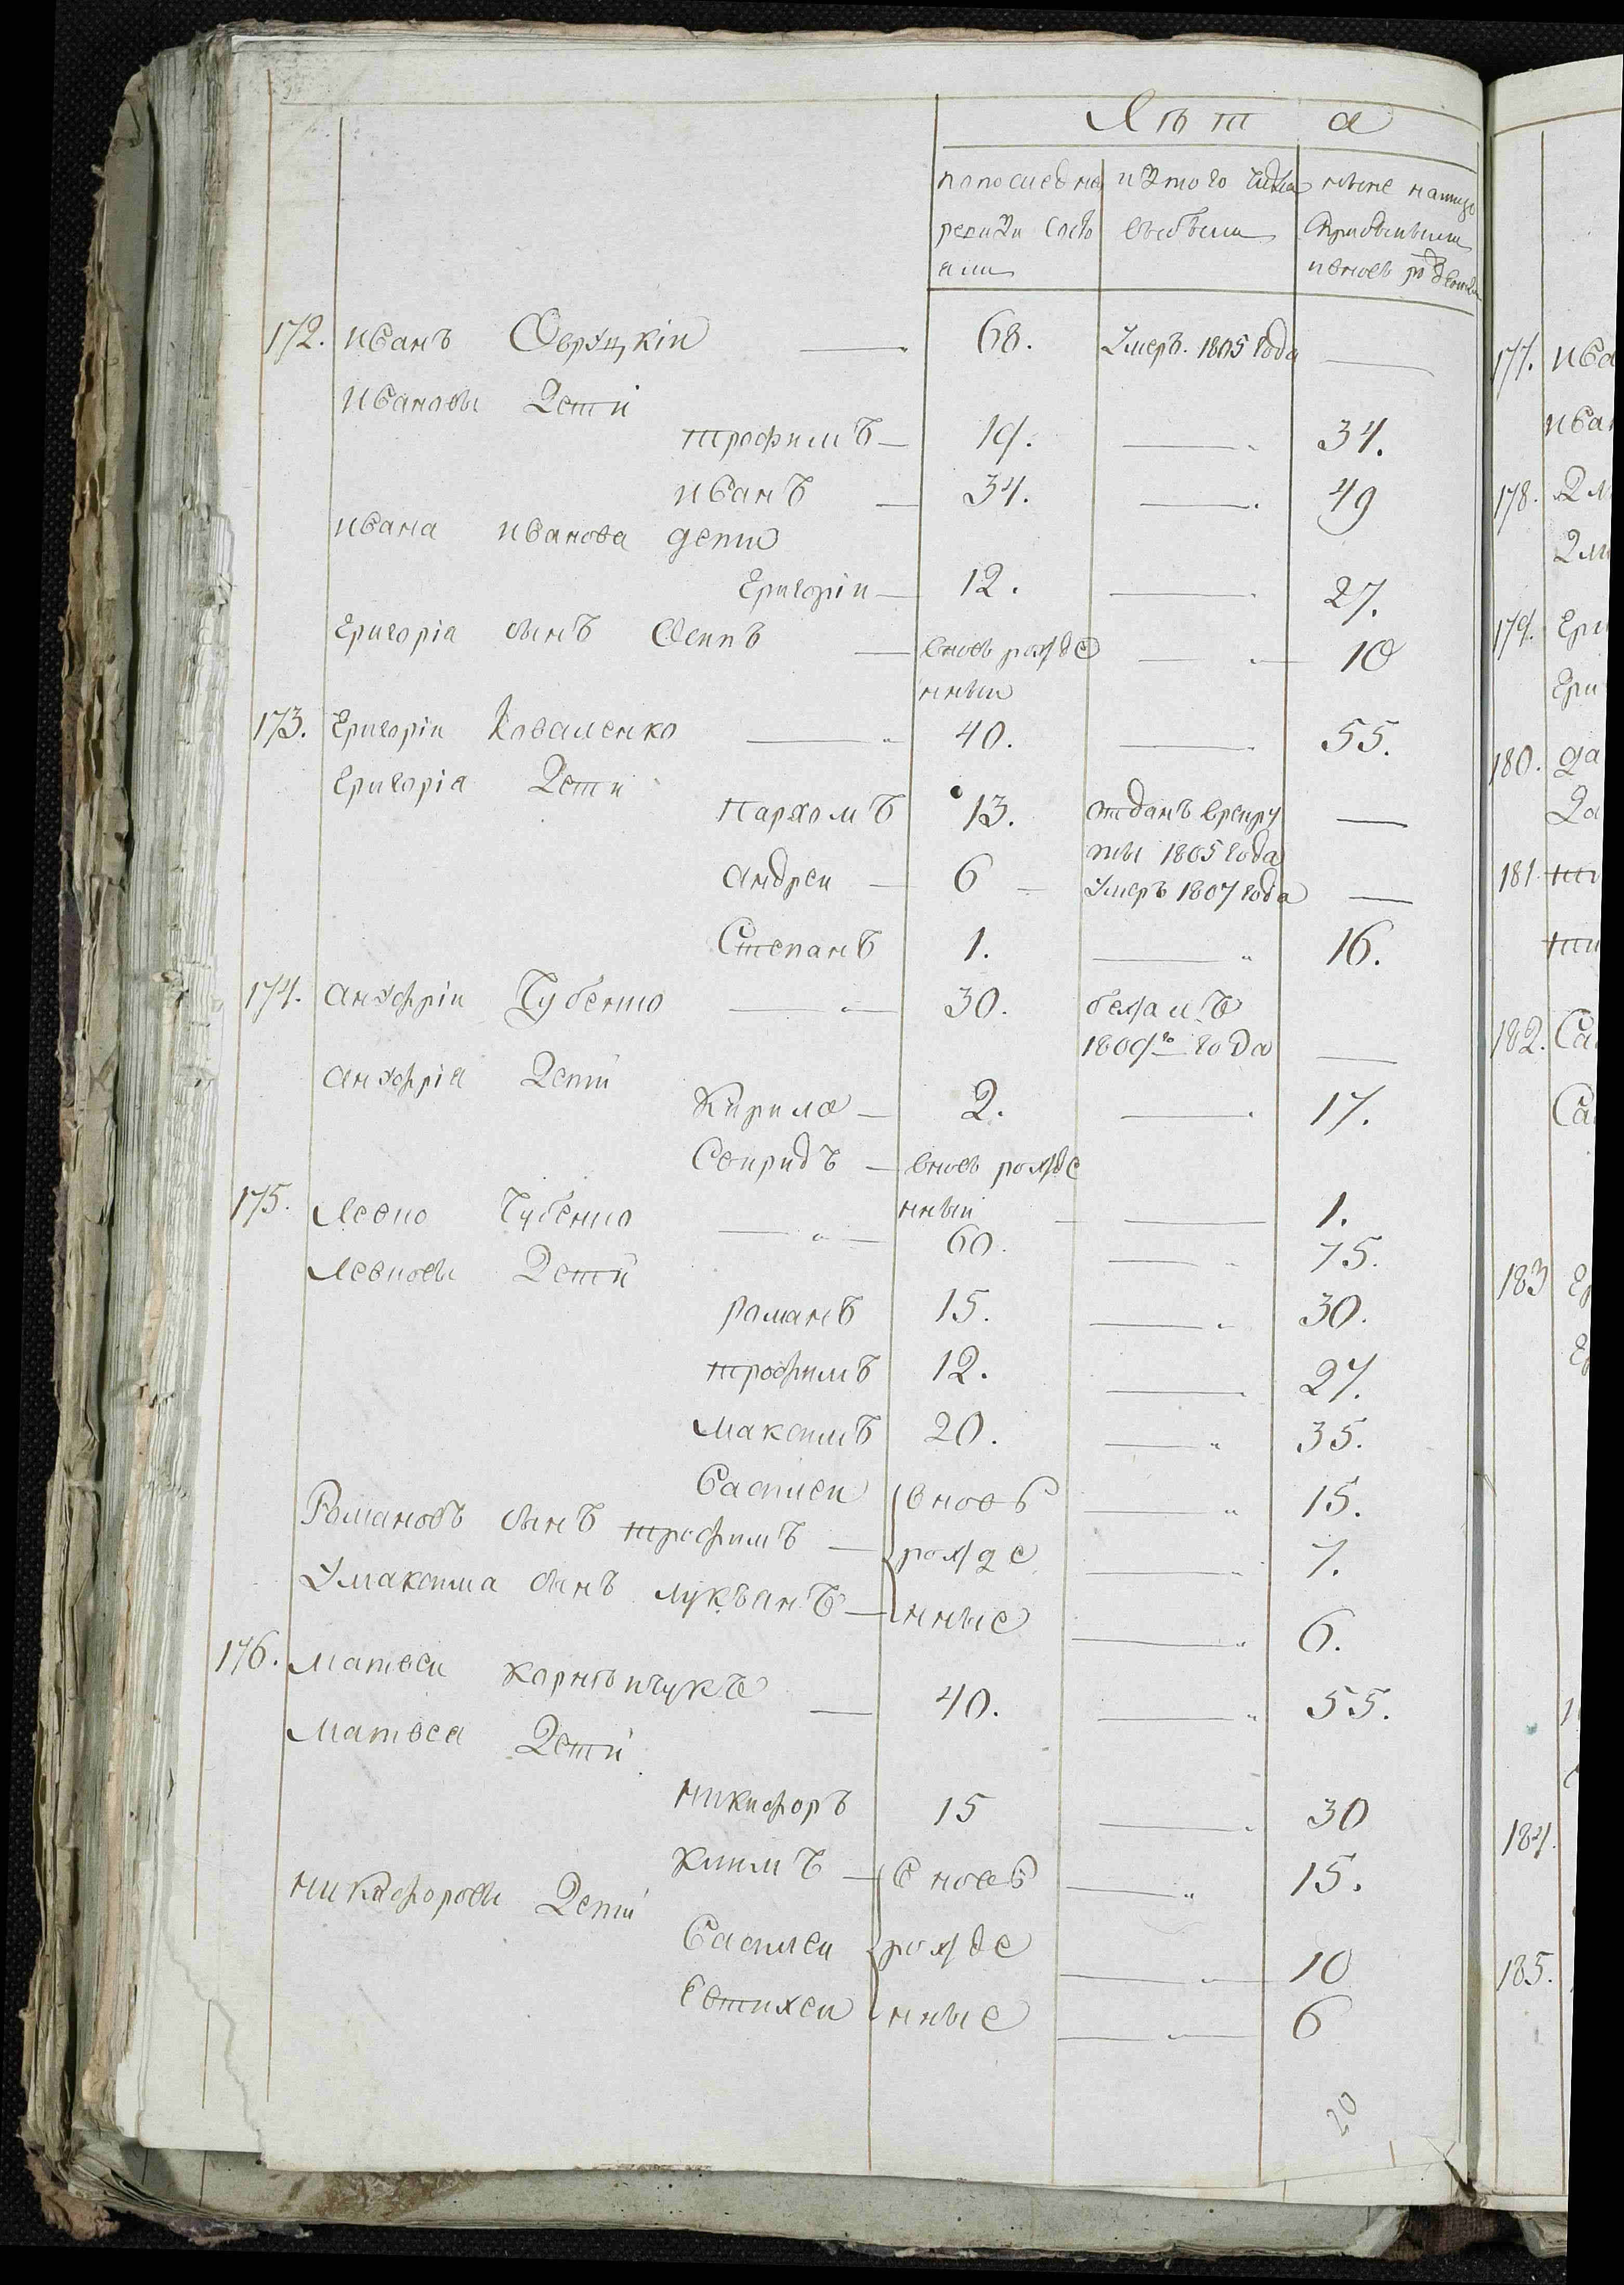 Лѣта
попоследне изтого числа ныне налицо
ревизи состо выбыли спрыбылыми
яли ивновь рожденным
172. иванъ Овруцкіи — 68. Умеръ. 1805 года —
ивановы Дети
трофимъ — 19. — 34.
иванъ — 34. — 49
ивана иванова дети
Григоріи — 12. — 27.
Григоріа сынъ Осипъ — вновь рожде — 10
нныи
173. Григоріи Коваленко — 40. — 55.
Григоріа Дети
пархомъ 13. отданъ врекру —
ты 1805 года
андреи — 6 — Умеръ 1807 года —
Степанъ 1. — 16.
174. ануфріи Губенко — 30. бежалъ
1809го года —
ануфріа Дети
Кирило — 2. — 17.
Свиридъ — вновь рожде
нныи — 1.
175. Левко Губенко — 60. — 75.
Левковы Дети
романъ 15. — 30.
трофимъ 12. — 27.
максимъ 20. — 35.
василеи вновь — 15.
Романовъ сынъ трофимъ — рожде — 7.
Умаксима сынъ лукъянъ — нные — 6.
176. матвеи корнѣичукъ — 40. — 55.
матвеа Дети
никифоръ 15 — 30
климъ — вновь — 15.
никифоровы Дети
василеи рожде — 10
евтихеи нные — 6
20
177. ива
иван
178.
179. Гри
Гри
180. да
Да
181
182. Са
Са
183
184.
185.